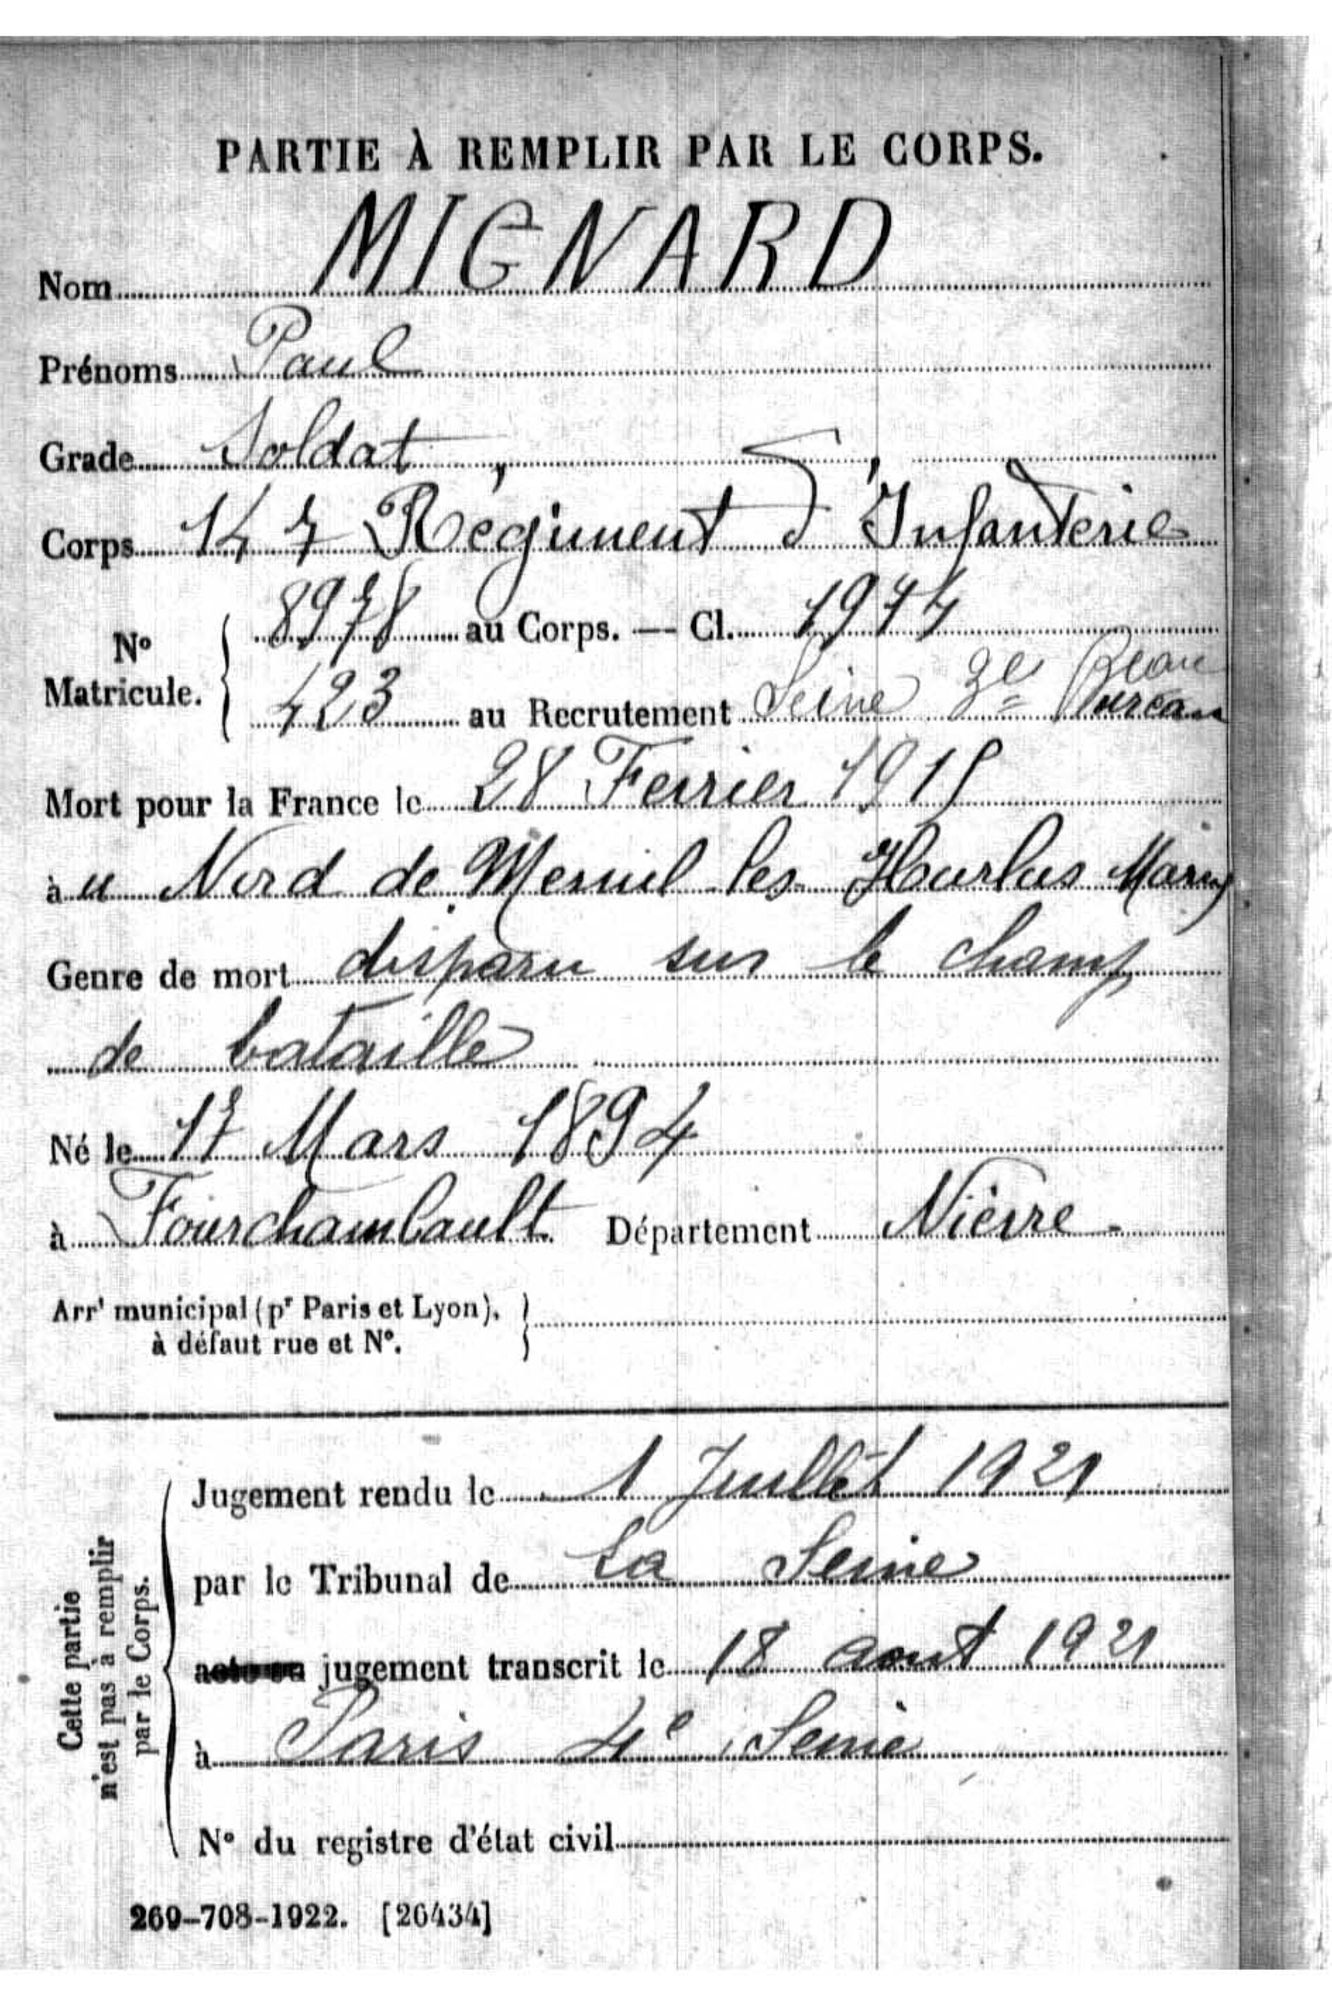 PARTIE À REMPLIR PAR LE CORPS.
Nom MIGNARD
Prénoms Paul
Grade Soldat
Corps 147 Régiment d'Infanterie
N° Matricule. 8978 au Corps. — Cl. 1914
423 au Recrutement Seine 3e Bureau
Mort pour la France le 28 Fevrier 1915
à u Nord de Mesnil les Hurlus Marne
Genre de mort disparu sur le champ
de bataille
Né le 17 Mars 1894
à Fourchambault Département Nièvre
Arrt municipal (pr Paris et Lyon),
à défaut rue et N°.
Cette partie
n'est pas à remplir
par le Corps.
Jugement rendu le 1 Juillet 1921
par le Tribunal de La Seine
acte ou jugement transcrit le 18 aout 1921
à Paris 4e Seine
N° du registre d'état civil
269-708-1922. [26434]